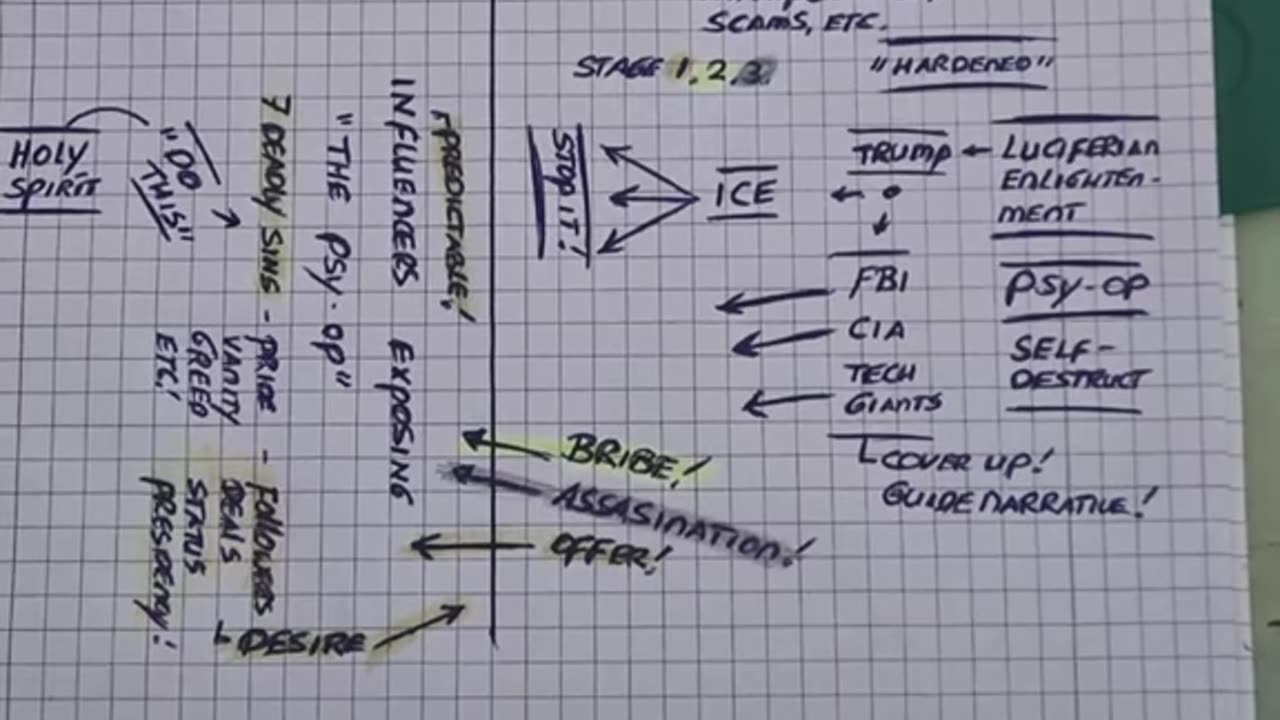 SCAMS, ETC.
STAGE 1.2.3
"HARDENED"
STOP IT!
ICE
TRUMP
LUCIFERIAN
ENLIGHTEN-
MENT
FBI
CIA
TECH
GIANTS
COVER UP!
GUIDE NARRATIVE!
PSY-OP
SELF-
DESTRUCT
BRIBE!
ASSASINATION!
OFFER!
PREDICTABLE!
INFLUENCERS EXPOSING
"THE PSY-OP"
7 DEADLY SINS - PRIDE - FOLLOWERS
VANITY DEALS
GREED STATUS
ETC! PRESIDENCY!
DESIRE
"DO
THIS"
HOLY
SPIRIT